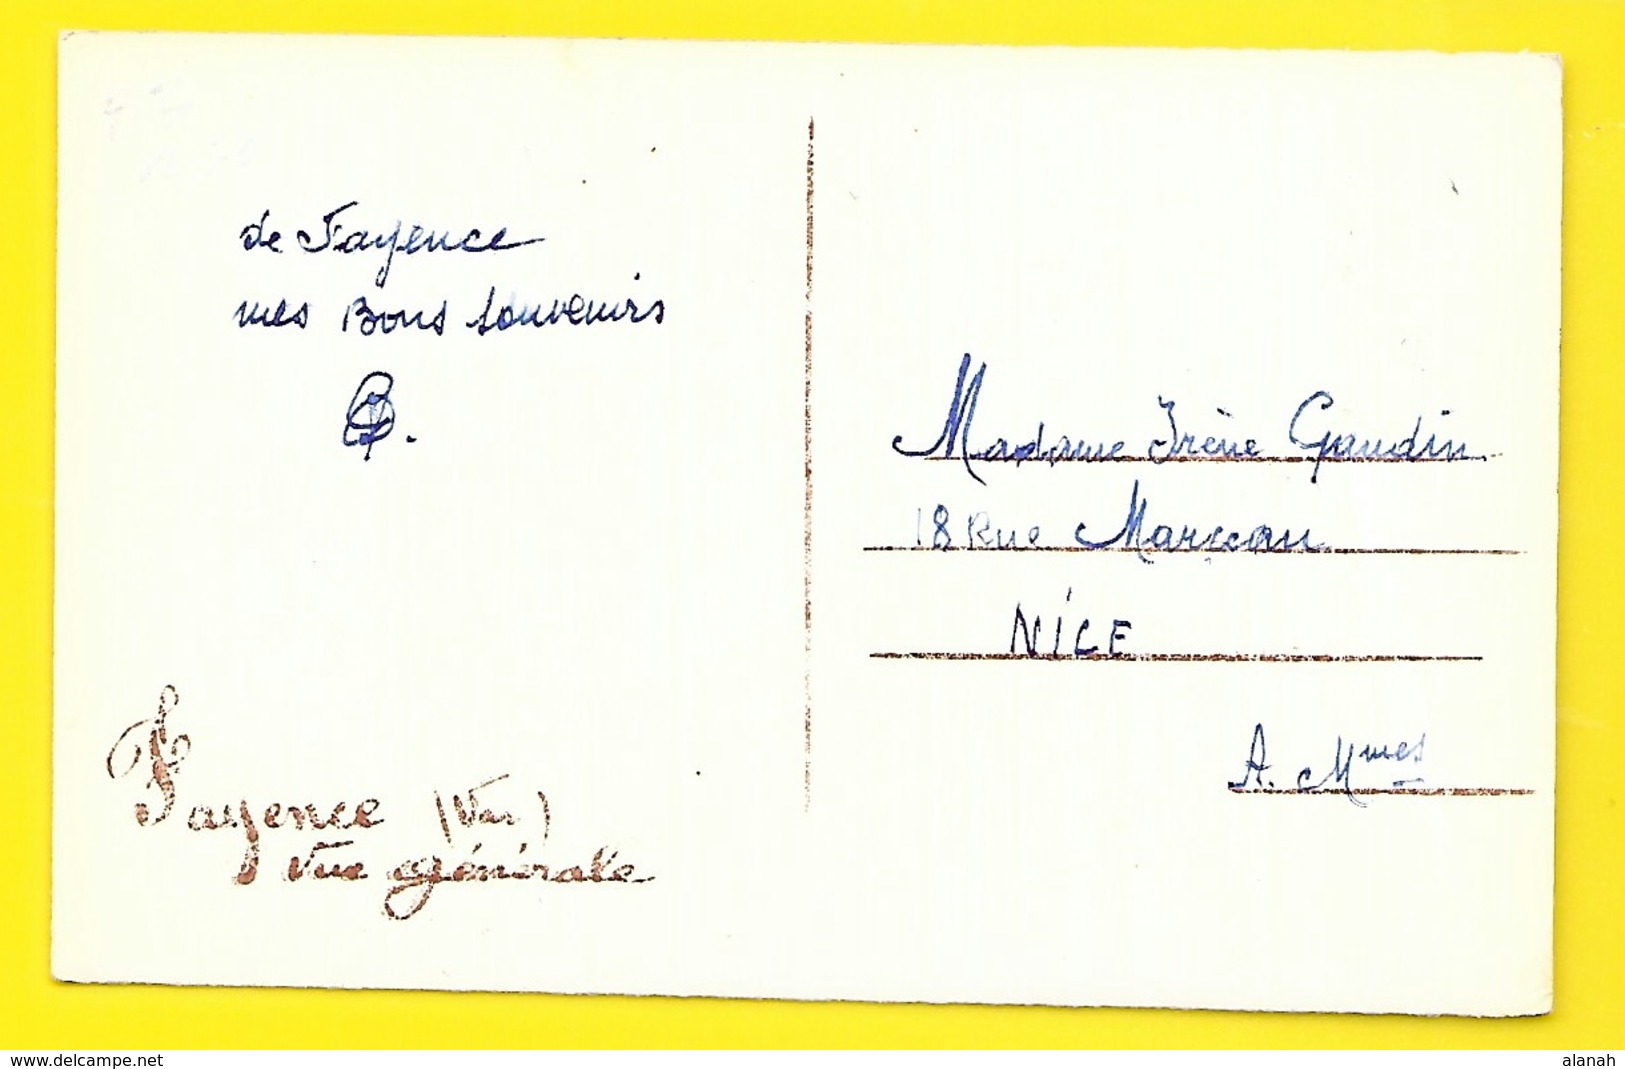 de Fayence
mes Bons souvenirs
Madame Irène Gaudin
18 Rue
NICE
A. Mmes
Fayence (Var)
Vue générale
delcampe.net
alanah